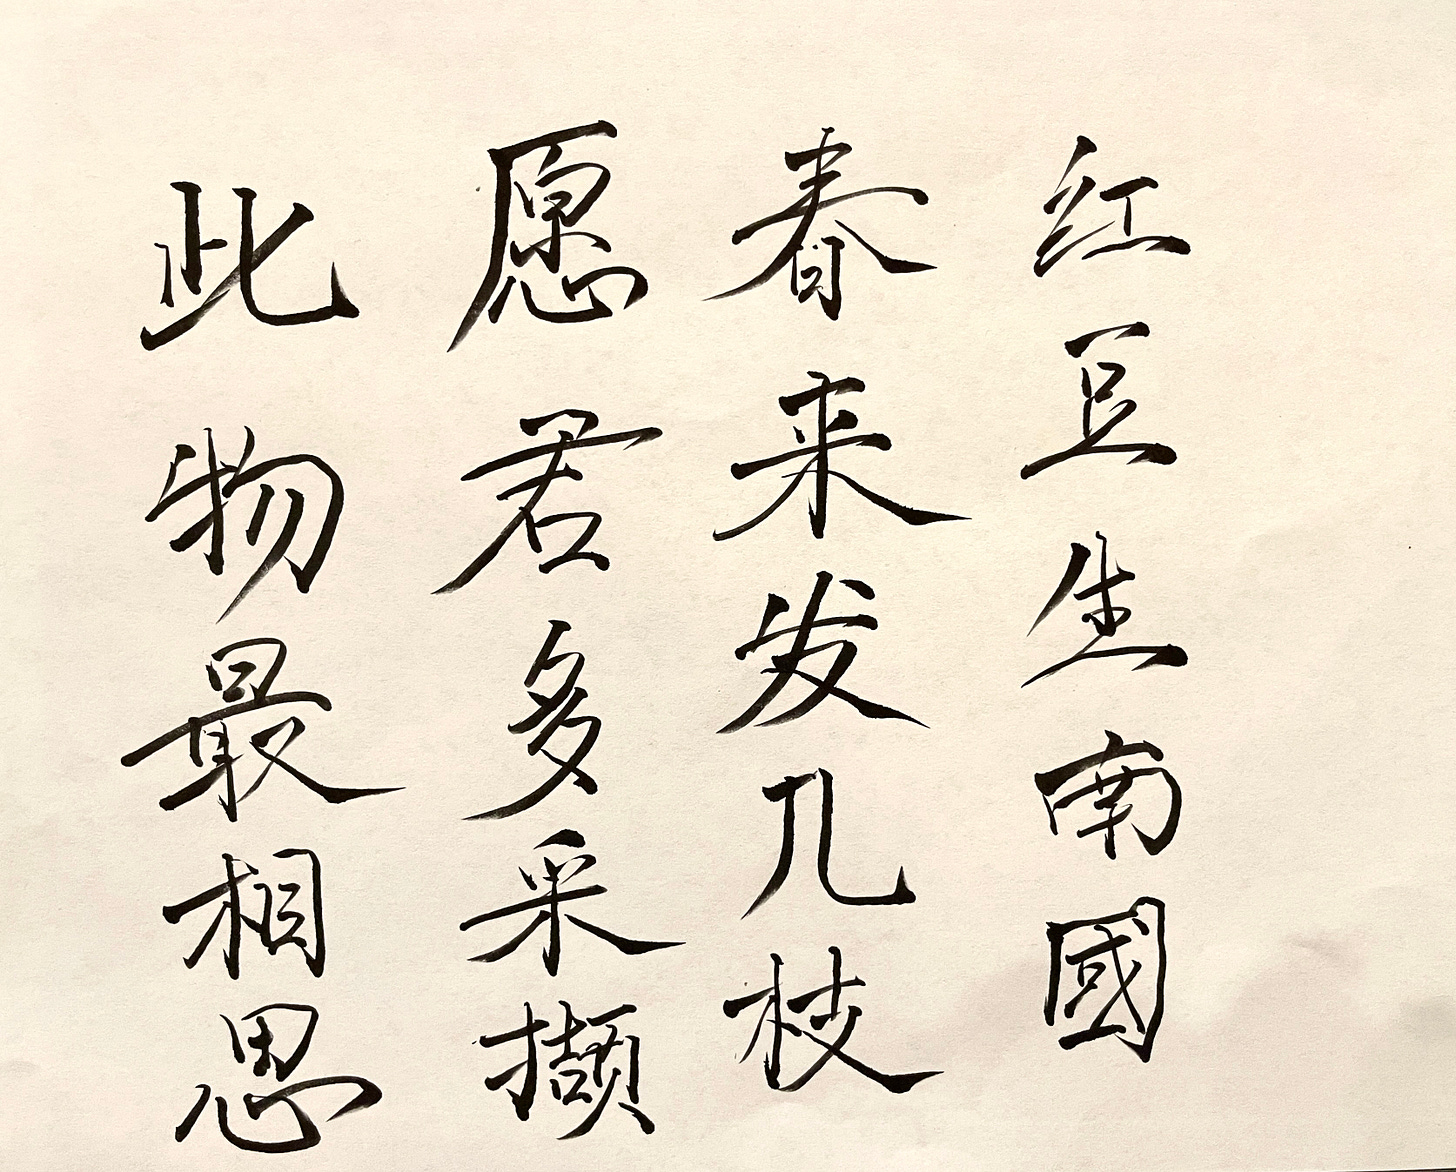 红豆生南國
春来发几枝
愿君多采撷
此物最相思